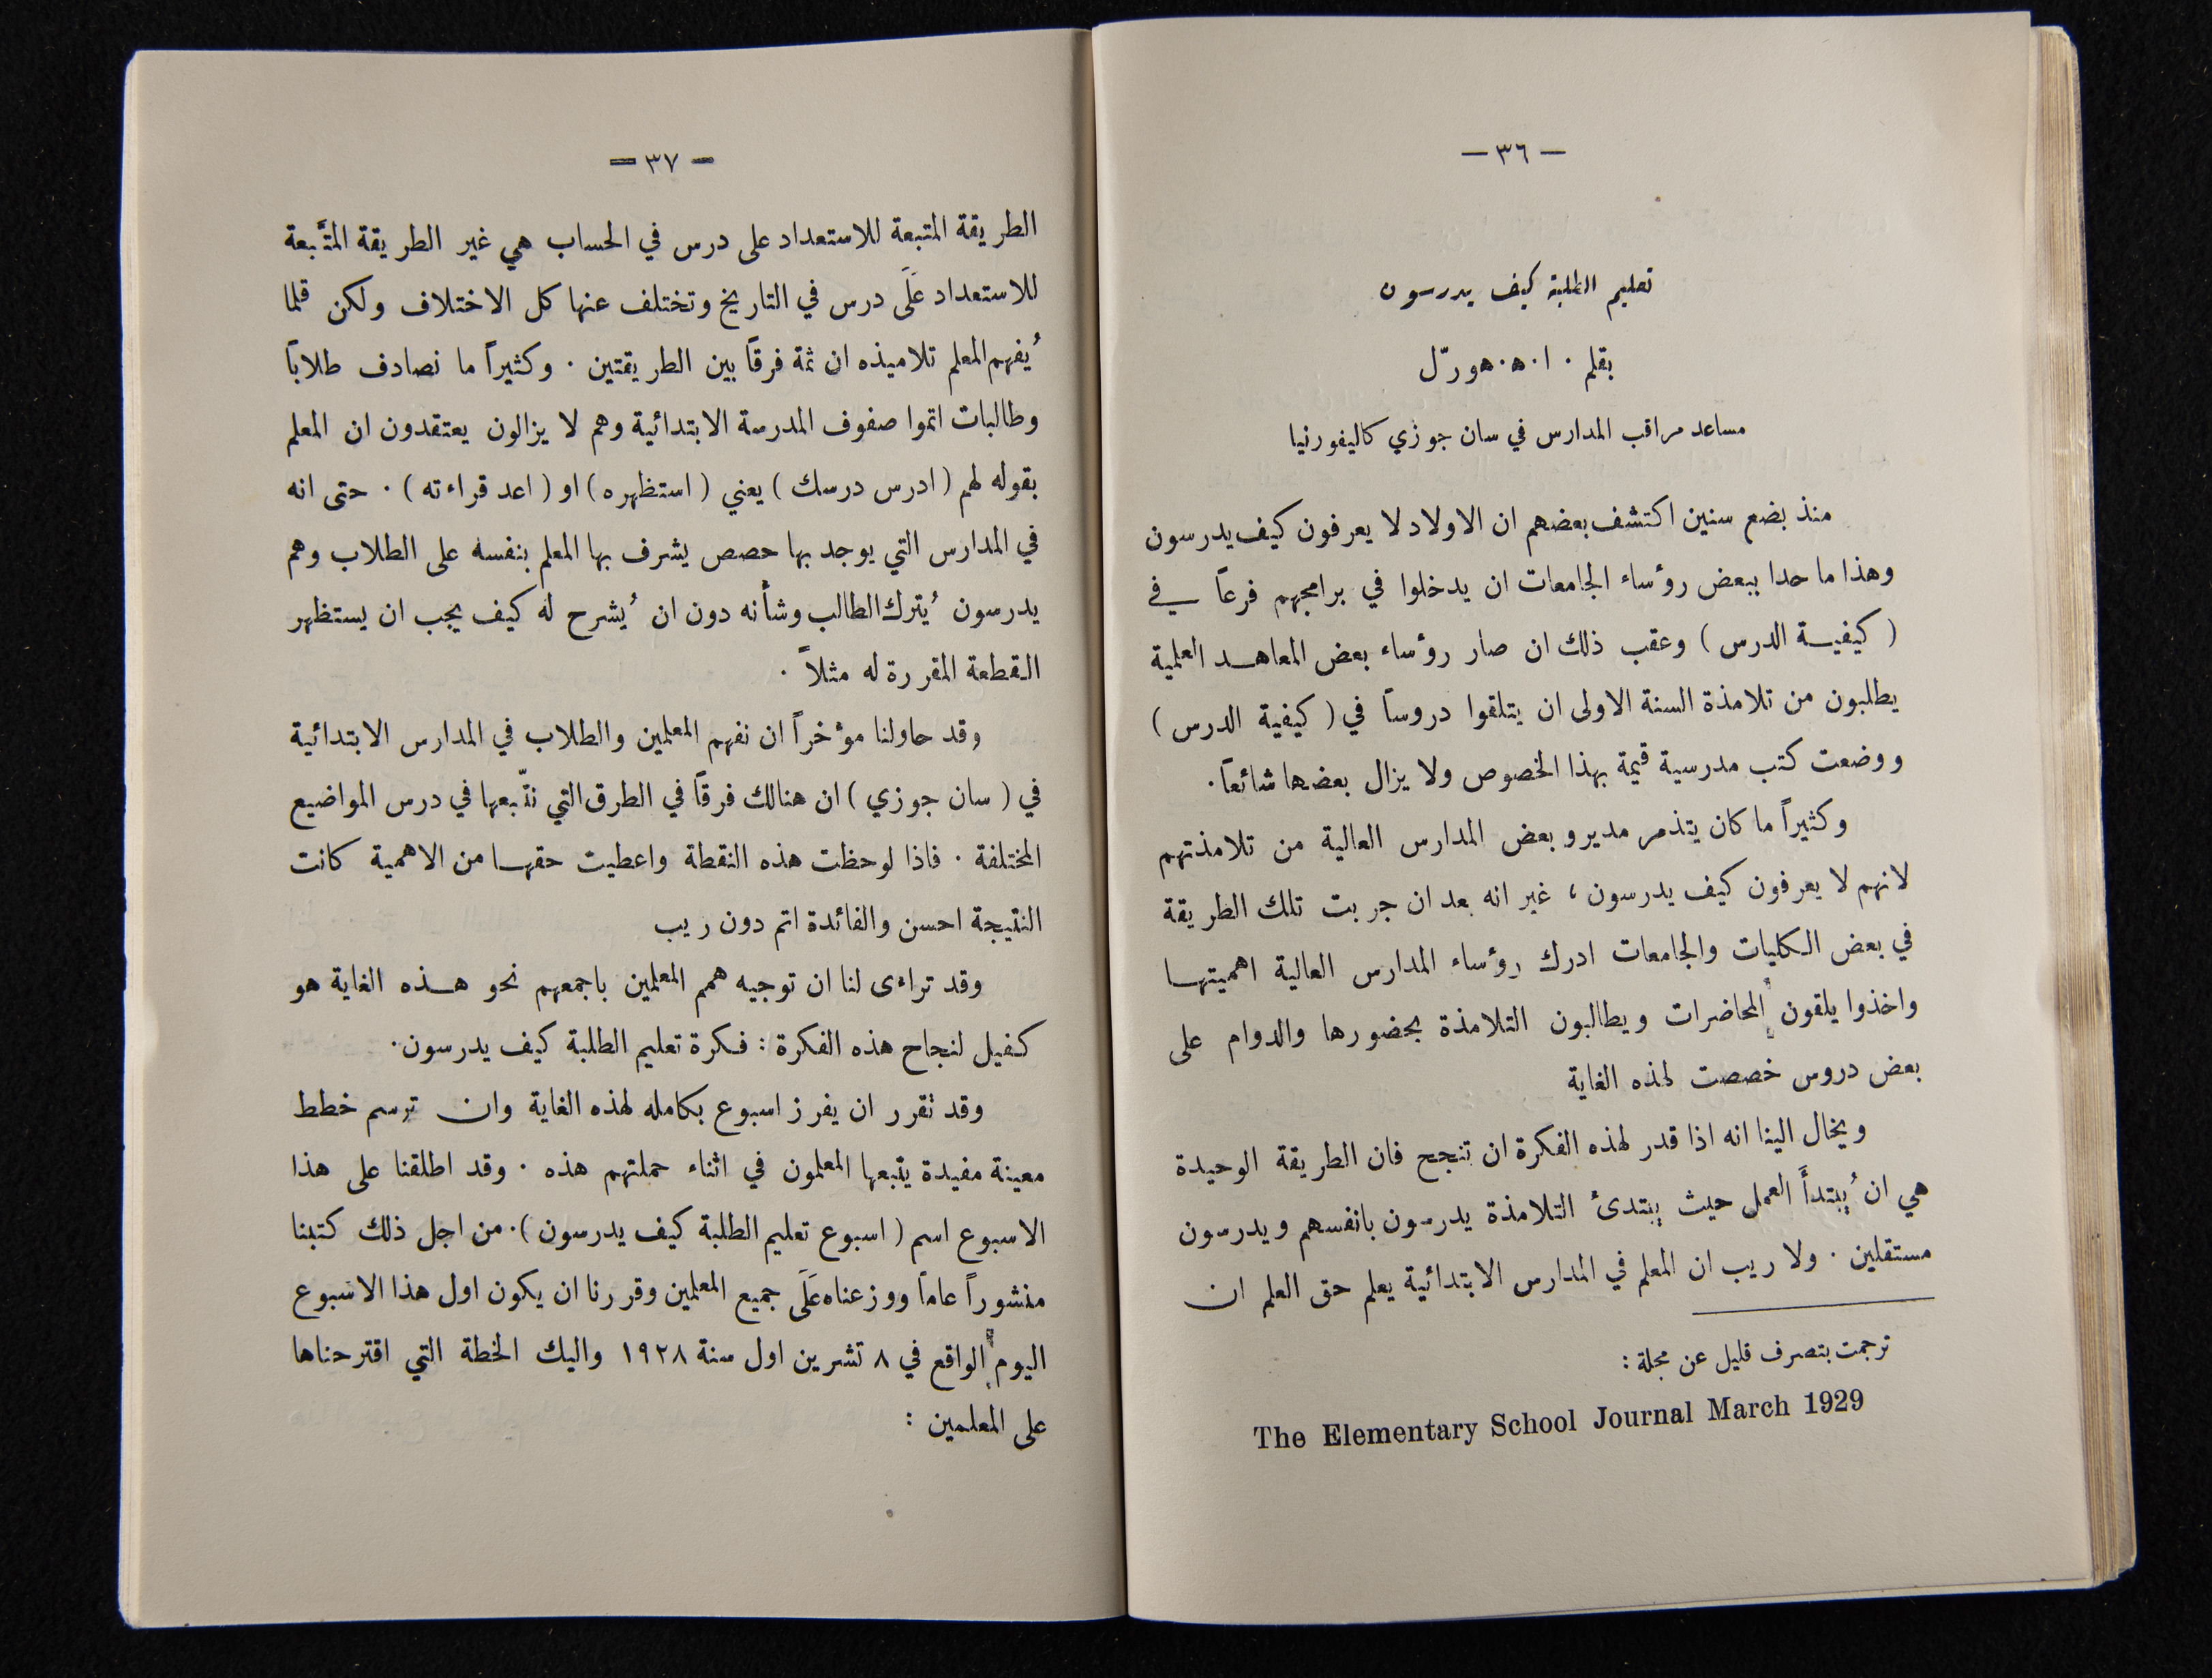 — ٣٦ —
تعليم الطلبة كيف يدرسون
بقلم ٠ ا ٠ ه ٠ هورّل
مساعد مراقب المدارس في سان جوزي كاليفورنيا
منذ بضع سنين اكتشف بعضهم ان الاولاد لا يعرفون كيف يدرسون
وهذا ما حدا ببعض رؤساء الجامعات ان يدخلوا في برامجهم فرعاً في
( كيفية الدرس ) وعقب ذلك ان صار رؤساء بعض المعاهد العلمية
يطلبون من تلامذة السنة الاولى ان يتلقوا دروساً في ( كيفية الدرس )
ووضعت كتب مدرسية قيمة بهذا الخصوص ولا يزال بعضها شائعاً.
وكثيراً ما كان يتذمر مديرو بعض المدارس العالية من تلامذتهم
لانهم لا يعرفون كيف يدرسون ، غير انه بعد ان جربت تلك الطريقة
في بعض الكليات والجامعات ادرك رؤساء المدارس العالية اهميتها
واخذوا يلقون المحاضرات ويطالبون التلامذة بحضورها والدوام على
بعض دروس خصصت لهذه الغاية
ويخال الينا انه اذا قدر لهذه الفكرة ان تنجح فان الطريقة الوحيدة
هي ان يُبتدأَ العمل حيث يبتدئ التلامذة يدرسون بانفسهم ويدرسون
مستقلين . ولا ريب ان المعلم في المدارس الابتدائية يعلم حق العلم ان
ترجمت بتصرف قليل عن مجلة :
The Elementary School Journal March 1929
— ٣٧ —
الطريقة المتبعة للاستعداد على درس في الحساب هي غير الطريقة المتَّبعة
للاستعداد عَلَى درس في التاريخ وتختلف عنها كل الاختلاف ولكن قلما
يُفهم المعلم تلاميذه ان ثمة فرقاً بين الطريقتين . وكثيراً ما نصادف طلاباً
وطالبات اتموا صفوف المدرسة الابتدائية وهم لا يزالون يعتقدون ان المعلم
بقوله لهم ( ادرس درسك ) يعني ( استظهره ) او ( اعد قراءته ) . حتى انه
في المدارس التي يوجد بها حصص يشرف بها المعلم بنفسه على الطلاب وهم
يدرسون يُترك الطالب وشأنه دون ان يُشرح له كيف يجب ان يستظهر
القطعة المقررة له مثلاً .
وقد حاولنا مؤخراً ان نفهم المعلمين والطلاب في المدارس الابتدائية
في ( سان جوزي ) ان هنالك فرقاً في الطرق التي نتّبعها في درس المواضيع
المختلفة . فاذا لوحظت هذه النقطة واعطيت حقها من الاهمية كانت
النتيجة احسن والفائدة اتم دون ريب
وقد تراءى لنا ان توجيه همم المعلمين باجمعهم نحو هذه الغاية هو
كفيل لنجاح هذه الفكرة : فكرة تعليم الطلبة كيف يدرسون.
وقد تقرر ان يفرز اسبوع بكامله لهذه الغاية وان ترسم خطط
معينة مفيدة يتبعها المعلمون في اثناء حملتهم هذه . وقد اطلقنا على هذا
الاسبوع اسم ( اسبوع تعليم الطلبة كيف يدرسون ). من اجل ذلك كتبنا
منشوراً عاماً ووزعناه عَلَى جميع المعلمين وقررنا ان يكون اول هذا الاسبوع
اليوم الواقع في ٨ تشرين اول سنة ١٩٢٨ واليك الخطة التي اقترحناها
على المعلمين :